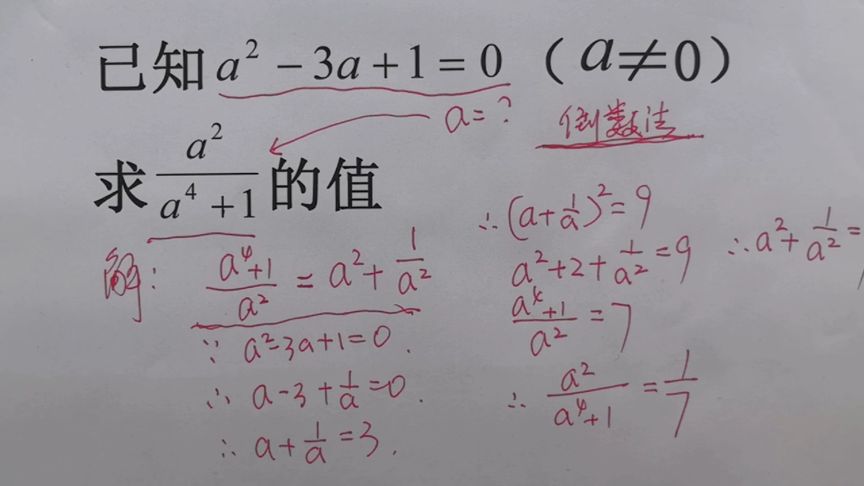 已知 a² − 3a + 1 = 0 （a≠0）
a = ?
倒数法
求 a²/(a⁴ + 1) 的值
解: (a⁴+1)/a² = a² + 1/a²
∵ a²-3a+1=0.
∴ a-3+1/a=0.
∴ a+1/a=3.
∴ (a+1/a)²=9
a²+2+1/a²=9
(a⁴+1)/a²=7
∴ a²/(a⁴+1)=1/7
∴ a²+1/a²=